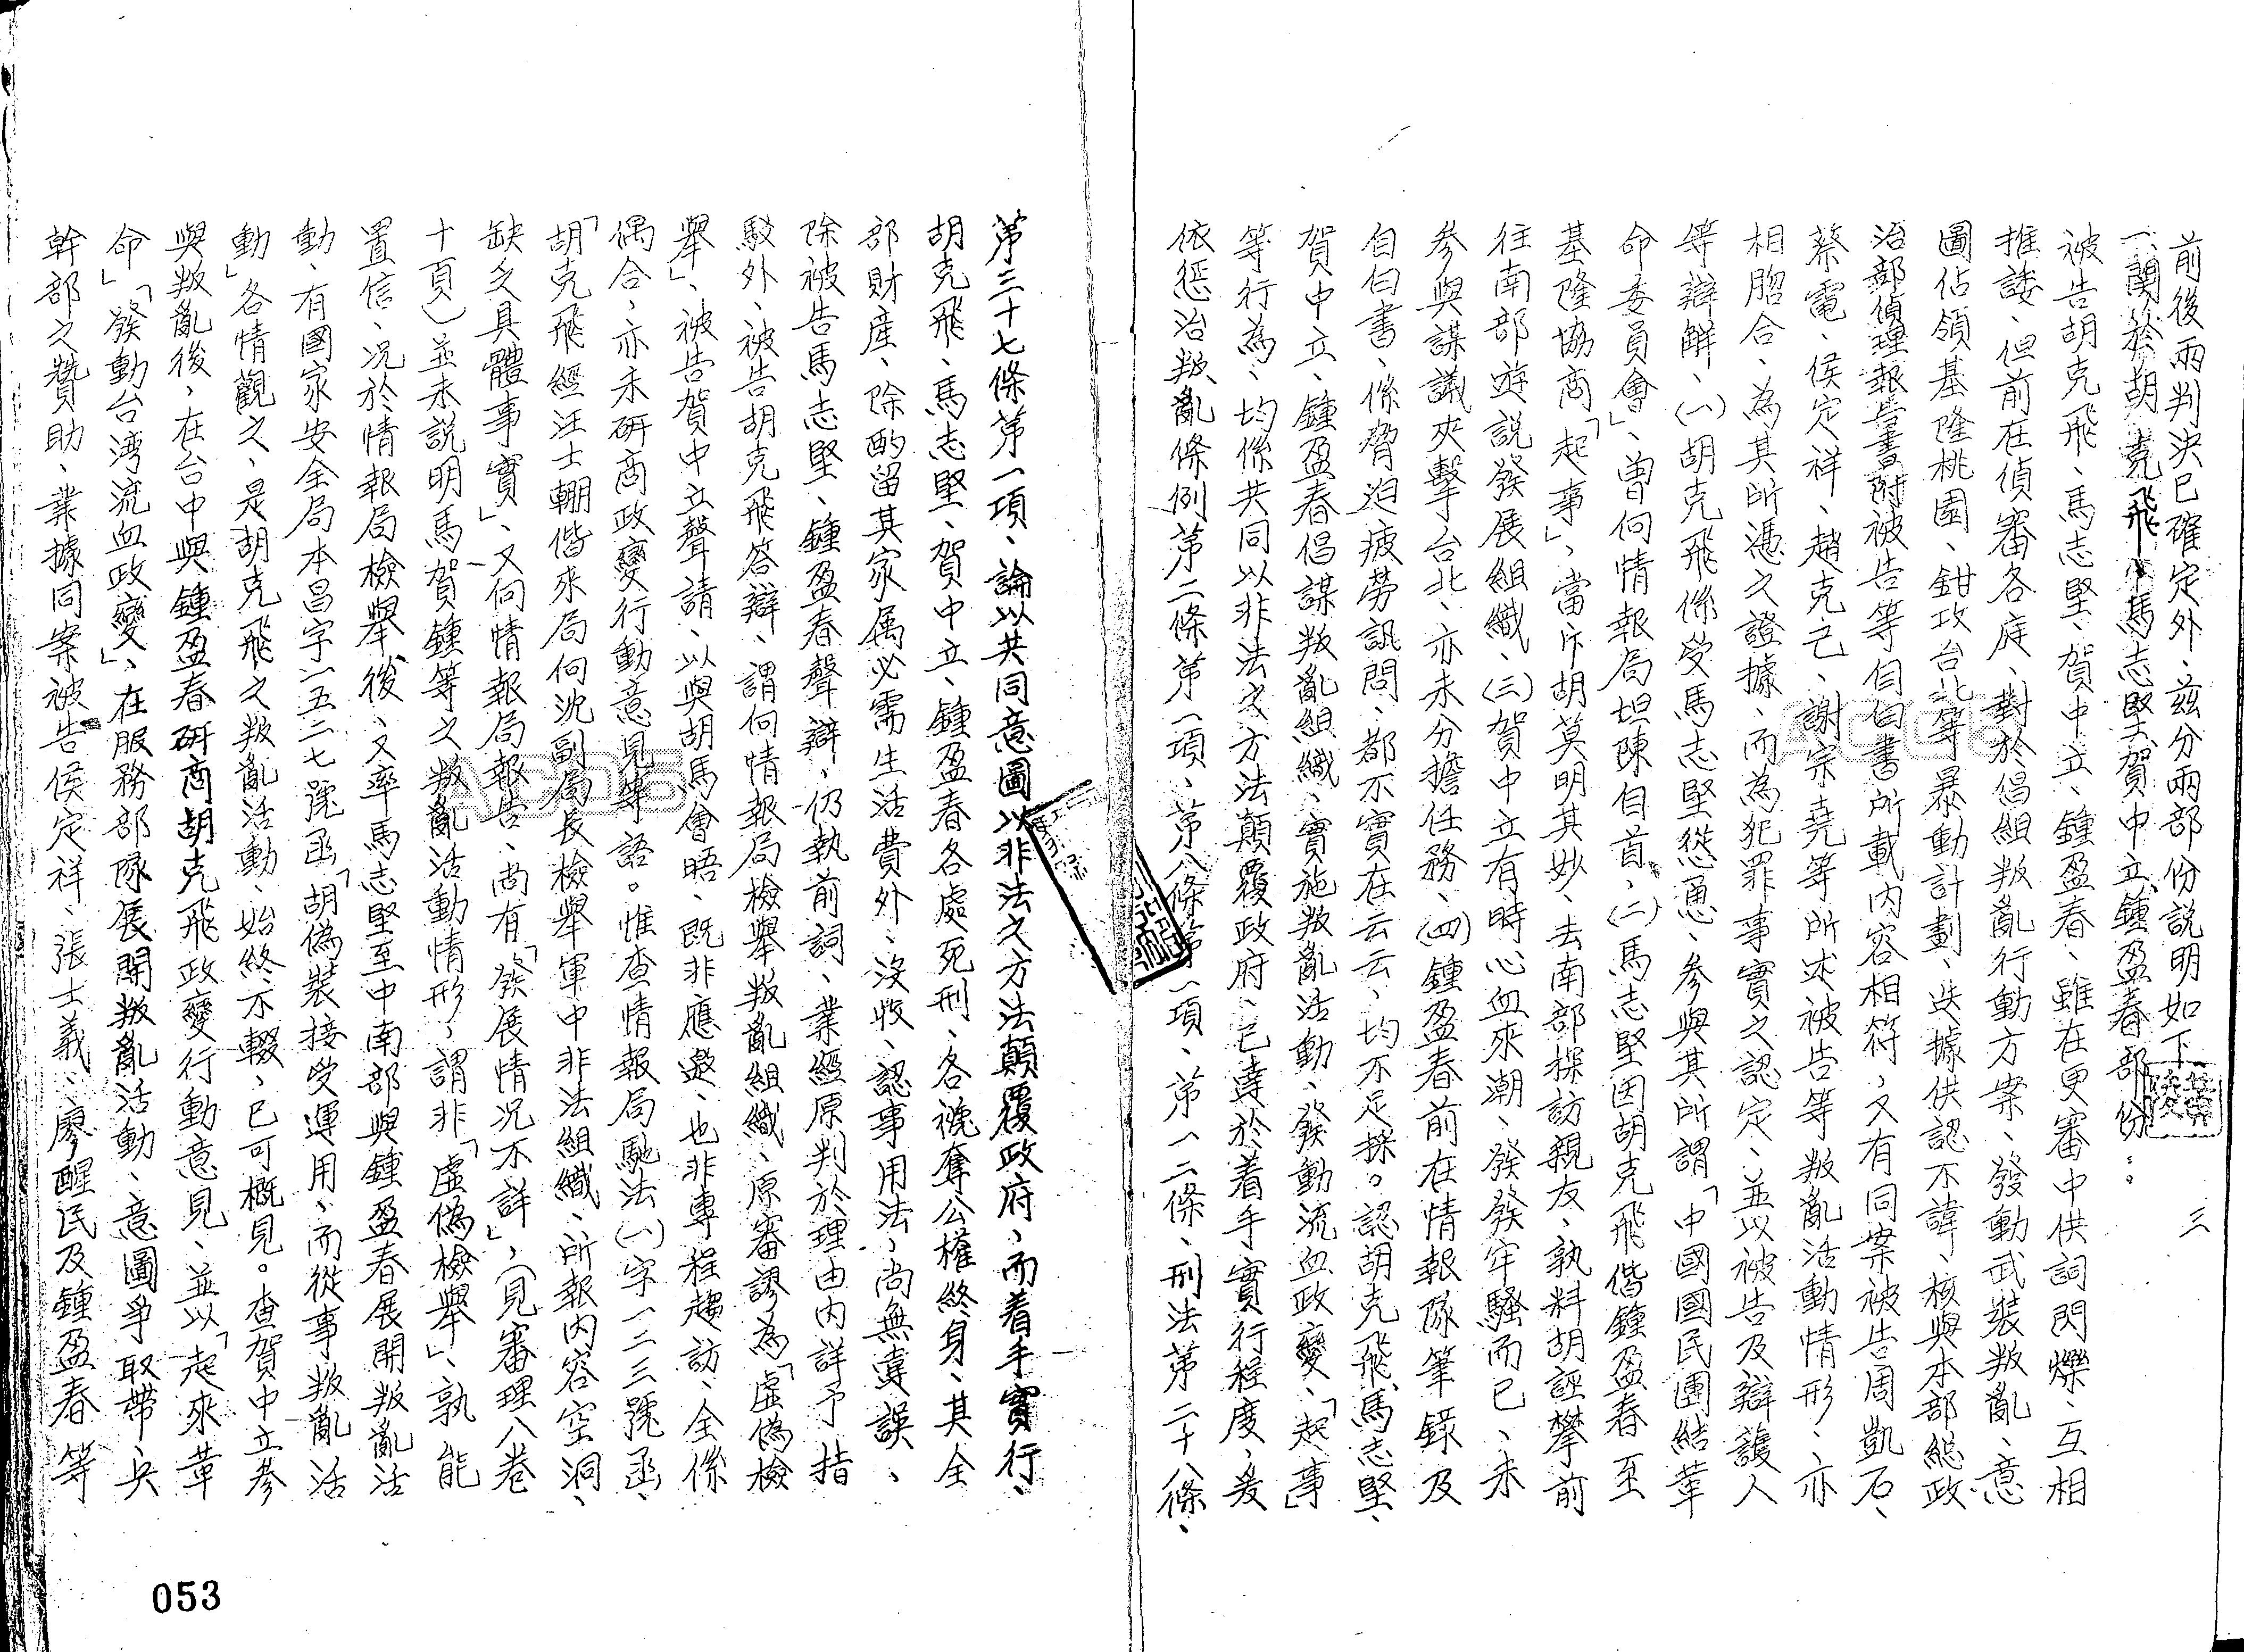 三
前後兩判決已確定外、茲分兩部份說明如下
一、關於胡克飛、馬志堅、賀中立、鍾盈春部份：。
被告胡克飛、馬志堅、賀中立、鍾盈春、雖在更審中供詞閃爍、互相
推諉、但前在偵審各庭、對於倡組叛亂行動方案、發動武裝叛亂、意
圖佔領基隆桃園、鉗攻台北等暴動計劃、迭據供認不諱、核與本部總政
治部偵理報告書附被告等自白書所載內容相符、又有同案被告周凱石、
蔡電、侯定祥、趙克己、謝宗堯等所述被告等叛亂活動情形、亦
相脗合、為其所憑之證據、而為犯罪事實之認定、並以被告及辯護人
等辯解、(一)胡克飛係受馬志堅慫恿、參與其所謂「中國國民團結革
命委員會」、曾向情報局坦陳自首、(二)馬志堅因胡克飛偕鍾盈春至
基隆協商「起事」、當斥胡莫明其妙、去南部探訪親友、孰料胡誣攀前
往南部遊說發展組織、(三)賀中立有時心血來潮、發發牢騷而已、未
參與謀議夾擊台北、亦未分擔任務、(四)鍾盈春前在情報隊筆錄及
自白書、係脅迫疲勞訊問、都不實在云云、均不足採。認胡克飛、馬志堅、
賀中立、鍾盈春倡謀叛亂組織、實施叛亂活動、發動流血政變、「起事」
等行為、均係共同以非法之方法顛覆政府、已達於着手實行程度、爰
依懲治叛亂條例第二條第一項、第八條第一項、第一二條、刑法第二十八條、
第三十七條第一項、論以共同意圖以非法之方法顛覆政府、而着手實行、
胡克飛、馬志堅、賀中立、鍾盈春各處死刑、各褫奪公權終身、其全
部財產、除酌留其家屬必需生活費外、沒收、認事用法、尚無違誤、
除被告馬志堅、鍾盈春聲辯、仍執前詞、業經原判於理由內詳予指
駁外、被告胡克飛答辯、謂向情報局檢舉叛亂組織、原審謬為「虛偽檢
舉」、被告賀中立聲請、以與胡馬會晤、既非應邀、也非專程趨訪、全係
偶合、亦未研商政變行動意見等語。惟查情報局馳法(一)字一二三號函、
「胡克飛經汪士輣偕來局向沈副局長檢舉軍中非法組織、所報內容空洞、
缺乏具體事實」、又向情報局報告、尚有「發展情况不詳」、(見審理八卷
十頁)並未說明馬賀鍾等之叛亂活動情形、謂非「虛偽檢舉」、孰能
置信、况於情報局檢舉後、又率馬志堅至中南部與鍾盈春展開叛亂活
動、有國家安全局本昌字一五二七號函、「胡偽裝接受運用、而從事叛亂活
動」各情觀之、是胡克飛之叛亂活動、始終不輟、已可概見。查賀中立參
與叛亂後、在台中與鍾盈春研商胡克飛政變行動意見、並以「起來革
命」「發動台湾流血政變」、在服務部隊展開叛亂活動、意圖爭取帶兵
幹部之贊助、業據同案被告侯定祥、張士義、廖醒民及鍾盈春等
053